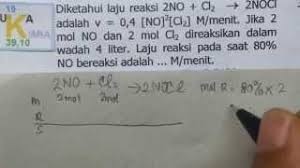 19
K
39,10
Diketahui laju reaksi 2NO + Cl₂ → 2NOCl
adalah v = 0,4 [NO]²[Cl₂] M/menit. Jika 2
mol NO dan 2 mol Cl₂ direaksikan dalam
wadah 4 liter. Laju reaksi pada saat 80%
NO bereaksi adalah ... M/menit.
2NO + Cl₂ → 2NOCl
M 2mol 2mol
R
S
mol R = 80% × 2